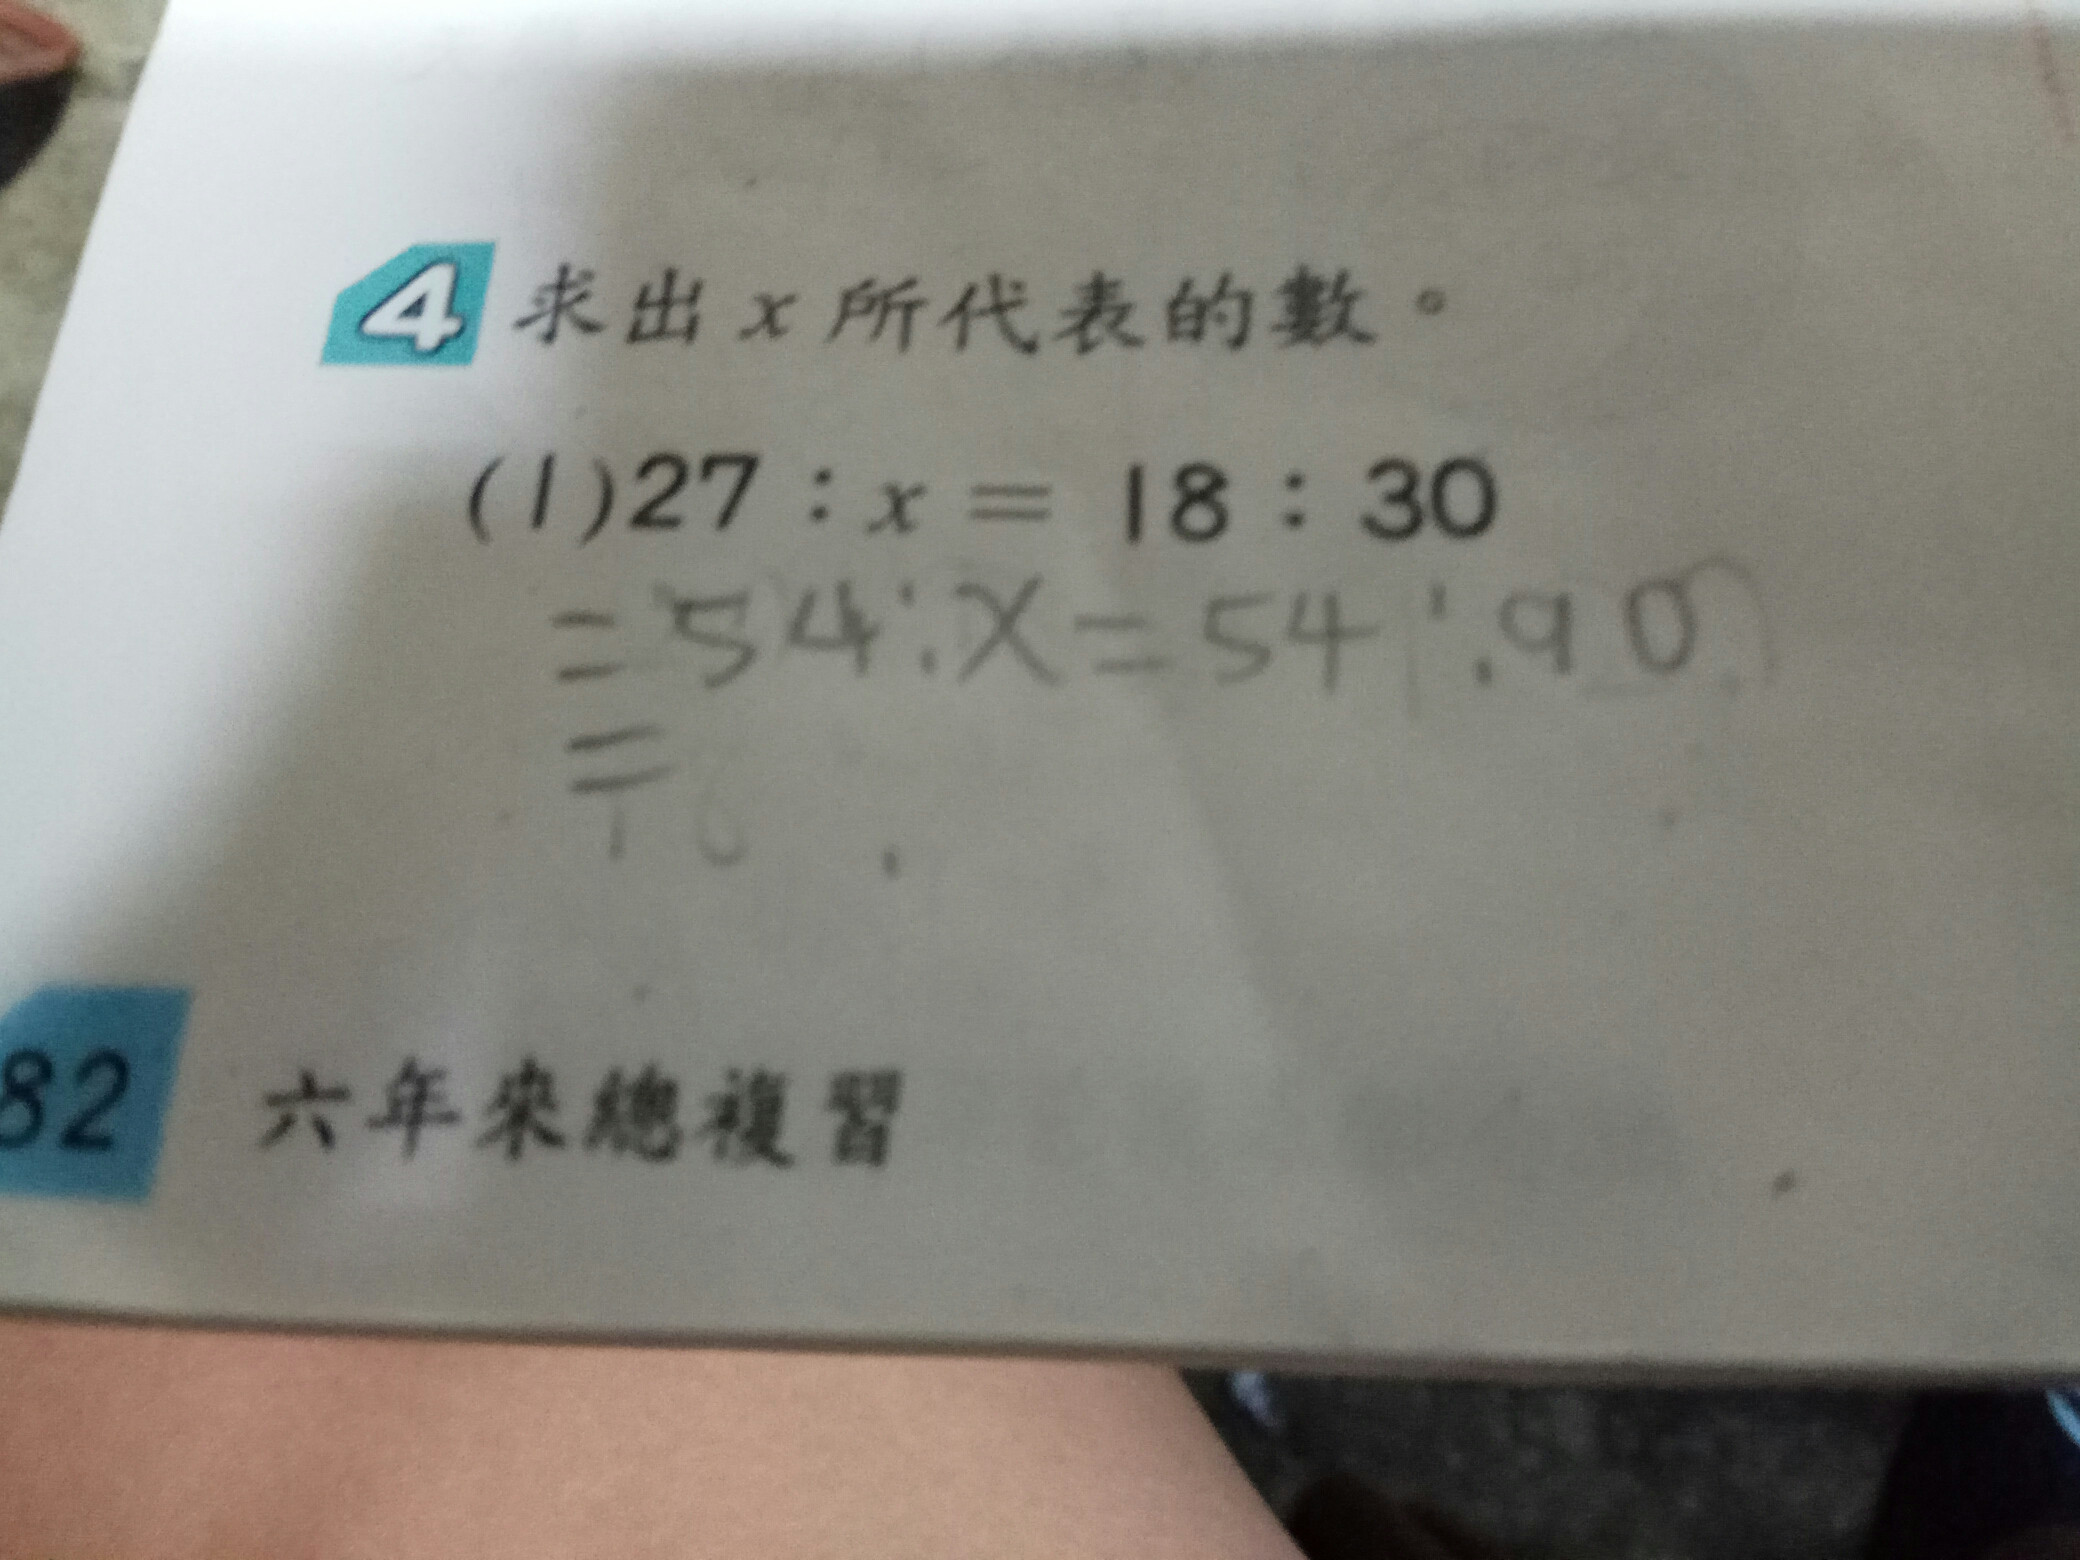 4 求出 x 所代表的數。
(1)27：x＝18：30
=54:X=54:90
=
82 六年來總複習